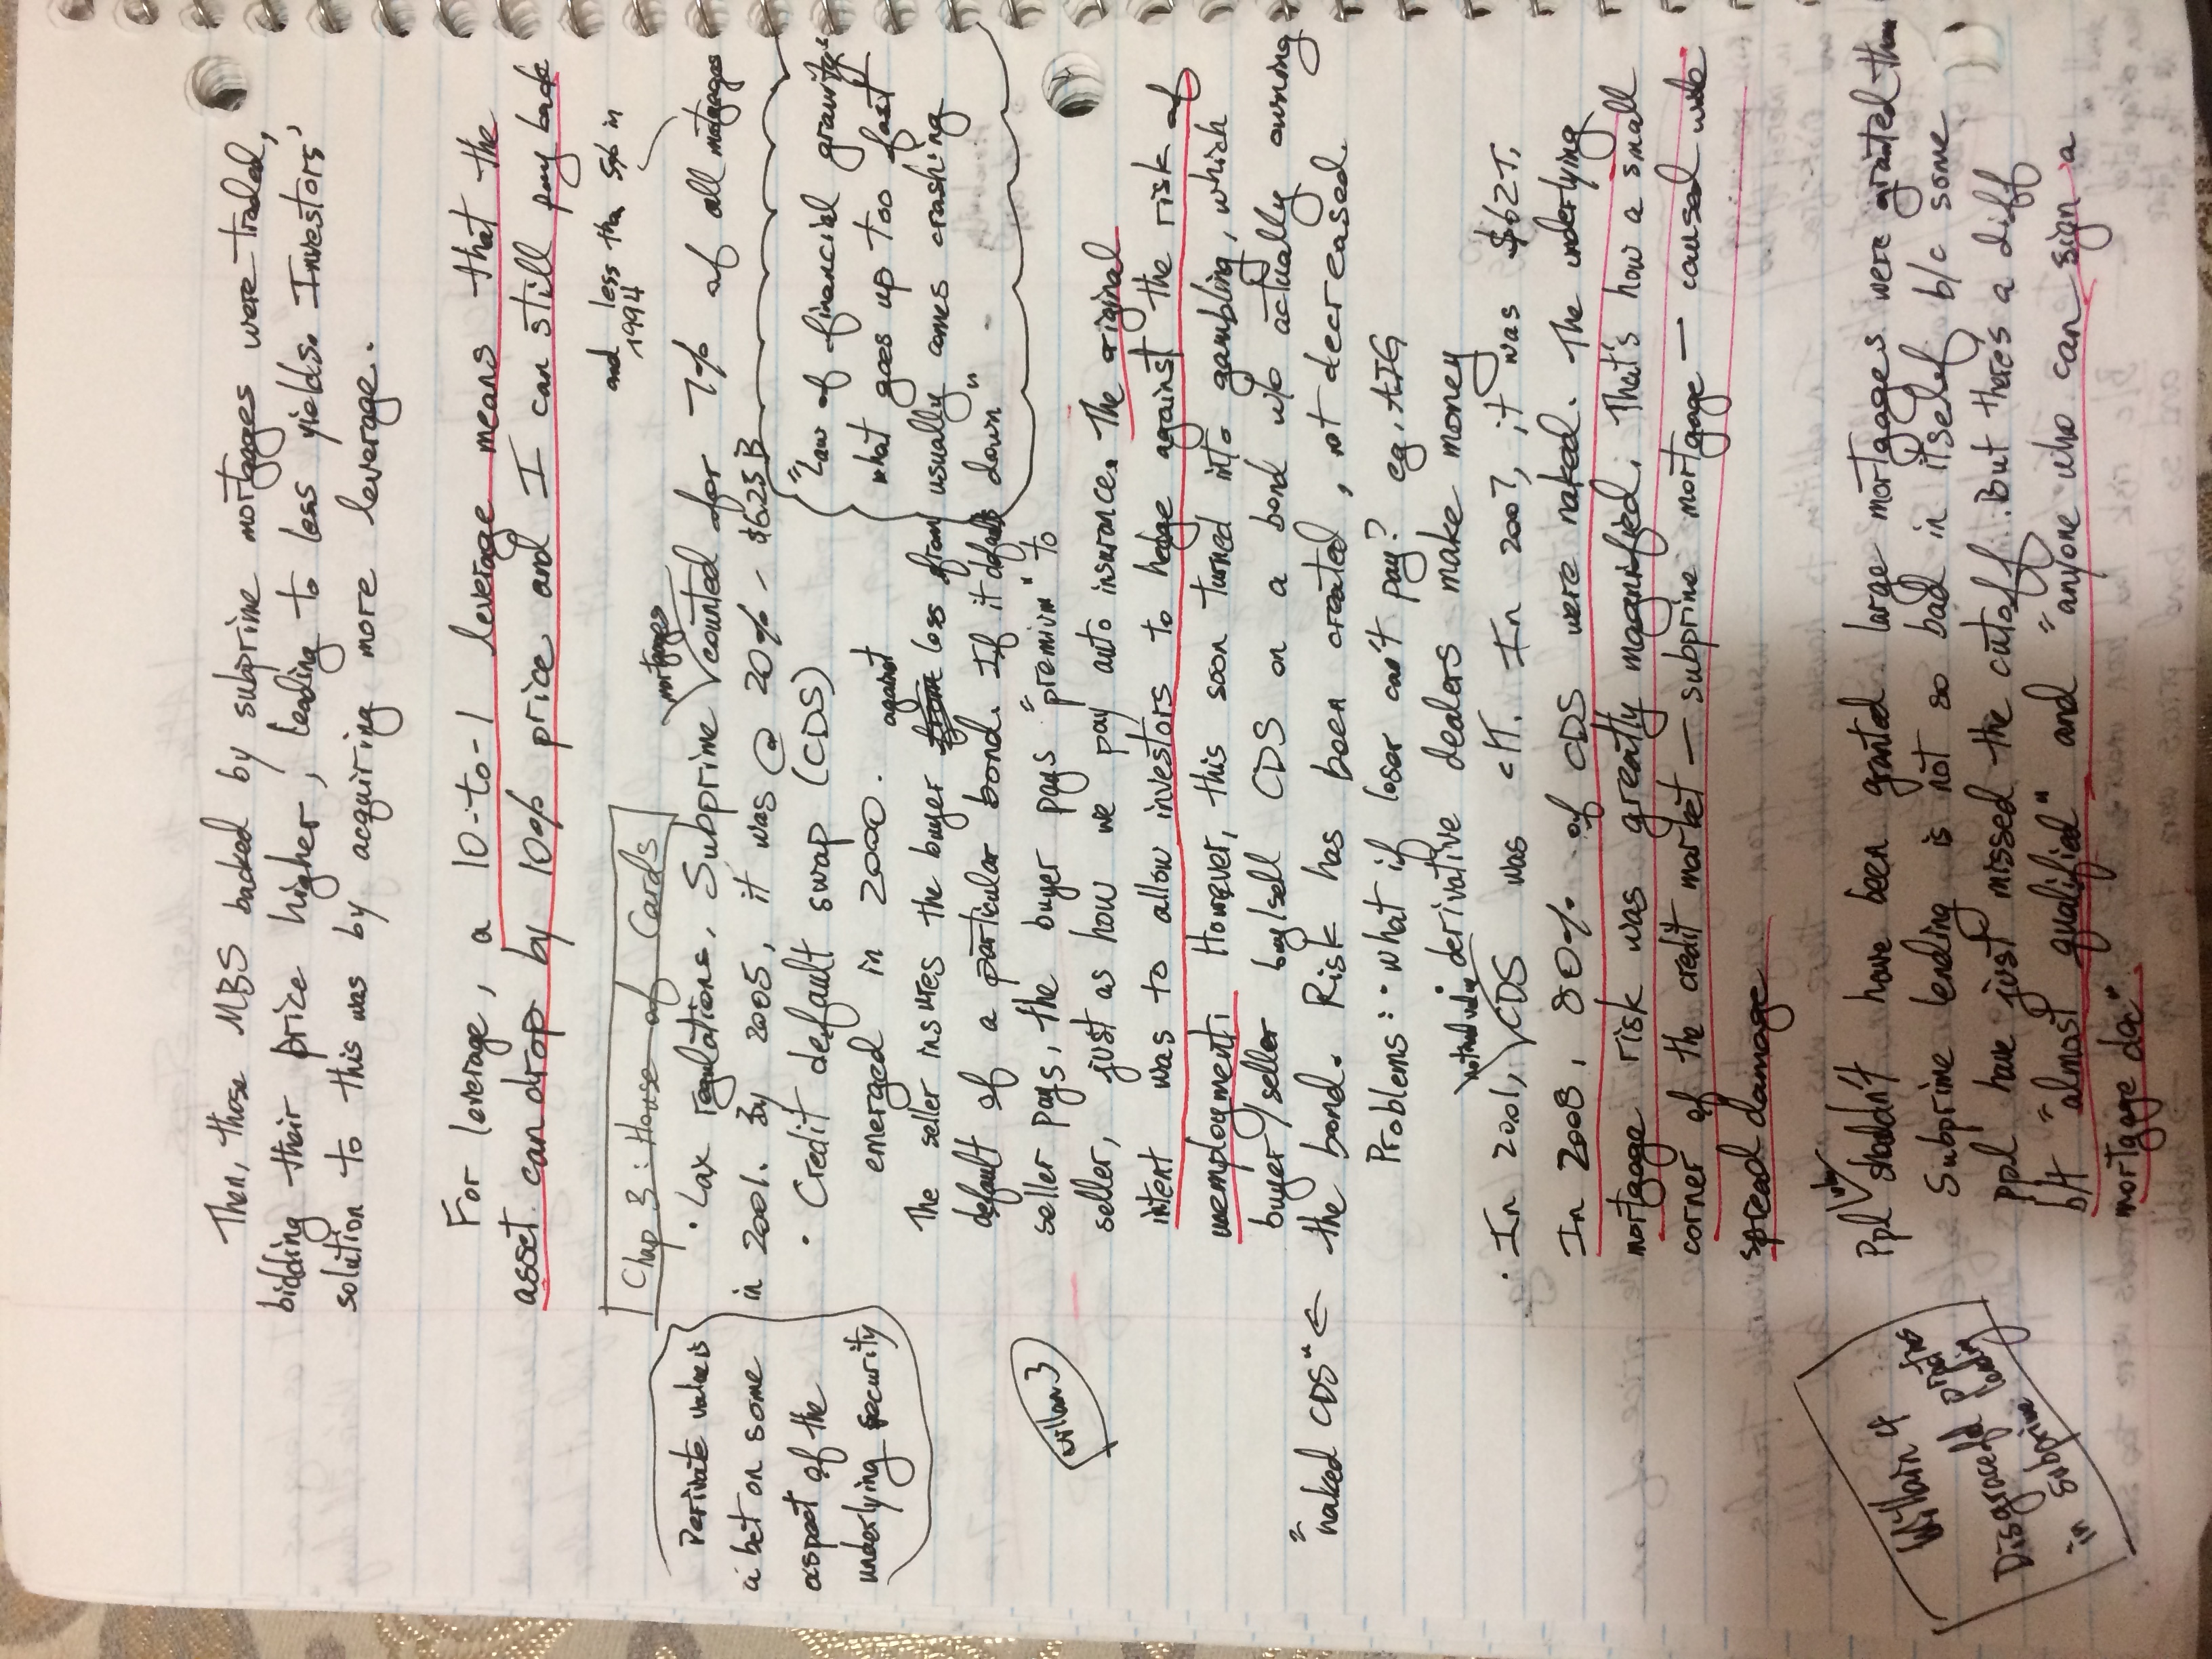 Then, those MBS backed by subprime mortgages were traded,
bidding their price higher, leading to less yields. Investors'
solution to this was by acquiring more leverage.
For leverage, a 10-to-1 leverage means that the
asset can drop by 10% price and I can still pay back
and less than 5% in
1994
Chap 3: House of Cards
mortgages
• Lax regulations. Subprime counted for 7% of all motgages
in 2001. By 2005, it was @ 20% - $625B
Derivate value is
a bet on some
aspect of the
underlying security
• Credit default swap (CDS)
emerged in 2000.
"Law of financial gravity:
what goes up too fast
usually comes crashing
down"
against
The seller insures the buyer from loss from
default of a particular bond. If it defaults
seller pays, the buyer pays "premium" to
villan 3
seller, just as how we pay auto insurance. The original
intent was to allow investors to hedge against the risk of
unemployment. However, this soon turned into gambling, which
buyer/seller buy/sell CDS on a bond w/o actually owning
"naked CDS" ←
the bond. Risk has been created, not decreased.
Problems: • what if loser can't pay? eg. AIG
• derivative dealers make money
notional value
• In 2001, CDS was <1T. In 2007, it was $62T.
In 2008, 80% of CDS were naked. The underlying
mortgage risk was greatly magnified. That's how a small
corner of the credit market — subprine mortgage — caused wide
spread damage
who
Ppl shouldn't have been granted large mortgages were granted them
Subprime lending is not so bad in itself b/c some
ppl have just missed the cutoff. But there's a diff
b/t "almost qualified" and "anyone who can sign a
mortgage doc".
Villain 4
Disgraceful practices
in subprime lending